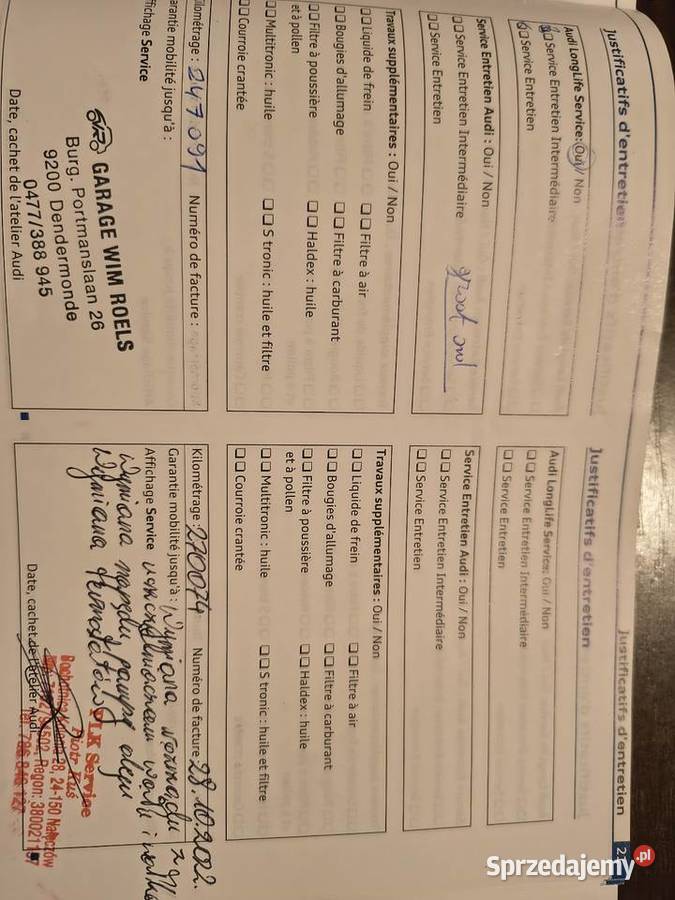 Justificatifs d'entretien
Audi LongLife Service: Oui / Non
Service Entretien Intermédiaire
Service Entretien
Service Entretien Audi : Oui / Non
Service Entretien Intermédiaire
Service Entretien
Travaux supplémentaires : Oui / Non
Liquide de frein
Filtre à air
Bougies d'allumage
Filtre à carburant
Filtre à poussière
et à pollen
Haldex : huile
Multitronic : huile
S tronic : huile et filtre
Courroie crantée
Kilométrage : 247091 Numéro de facture :
Garantie mobilité jusqu'à :
Affichage Service
GARAGE WIM ROELS
Burg. Portmanslaan 26
9200 Dendermonde
0477/388 945
Date, cachet de l'atelier Audi
Justificatifs d'entretien
Audi LongLife Service: Oui / Non
Service Entretien Intermédiaire
Service Entretien
Service Entretien Audi : Oui / Non
Service Entretien Intermédiaire
Service Entretien
Travaux supplémentaires : Oui / Non
Liquide de frein
Filtre à air
Bougies d'allumage
Filtre à carburant
Filtre à poussière
et à pollen
Haldex : huile
Multitronic : huile
S tronic : huile et filtre
Courroie crantée
Kilométrage : 270074 Numéro de facture
Garantie mobilité jusqu'à : Wymiana
Affichage Service
Wymiana napędu pompy oleju
Wymiana
Service
Piotr
24-150 Nałęczów
Date, cachet de l'atelier Audi
Justificatifs d'entretien
Sprzedajemy.pl